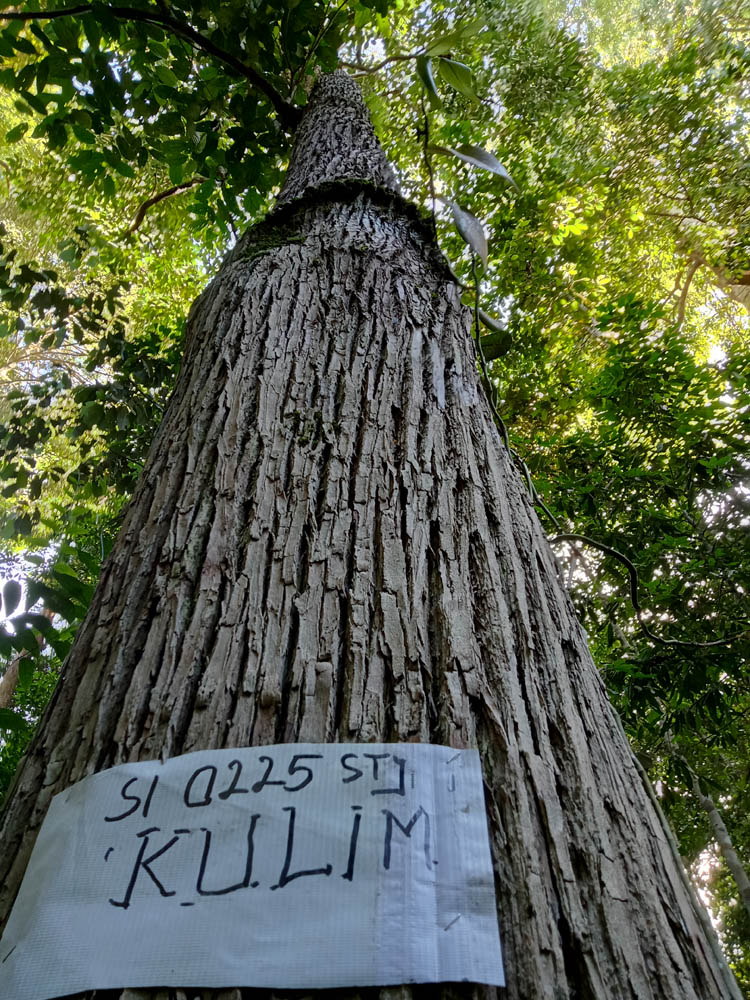 SI 0225 STJ
KULIM